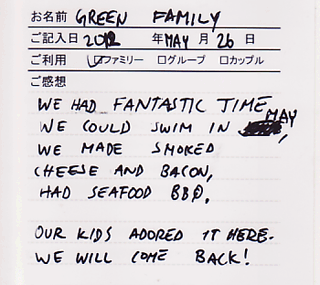 お名前 GREEN FAMILY
ご記入日 2012 年 MAY 月 26 日
ご利用 ☑ファミリー □グループ □カップル
ご感想
WE HAD FANTASTIC TIME
WE COULD SWIM IN MAY,
WE MADE SMOKED
CHEESE AND BACON,
HAD SEAFOOD BBQ.
OUR KIDS ADORED IT HERE.
WE WILL COME BACK!